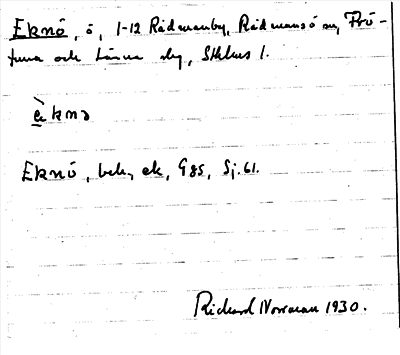 Eknö, ö, 1-12 Rådmanby, Rådmansö sn, Frö-
tuna och Länna skg, Sthlms l.
è̱knə
Eknö, beb., ek, G85, Sj. 61.
Richard Norrman 1930.